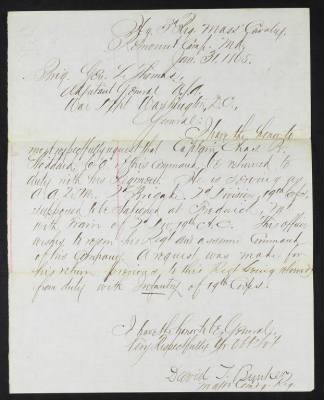 Hq. 3d Reg. Mass Cavalry,
Remount Camp Md,
Jan. 31. 1865.
Brig. Gen. L. Thomas,
Adjutant General U.S.A.
War Dept Washington, D.C.,
General:
I have the honor to
most respectfully request that Captain Chas.
Stoddard, Co. of this command, be returned to
duty with his Regiment. He is serving as
A. A. Q. M. 3d Brigade, 2d Division, 19th Corps,
supposed to be stationed at Frederick, Md
with train of 2d Div. 19th A.C. This officer
wishes to rejoin his Regt and assume Command
of his Company. A request was made for
his return previous to this Regt being relieved
from duty with Infantry of 19th Corps.
I have the honor to be, General,
Very Respectfully Yr Obt Svt
David T. Bunker
Major Comdg Reg.